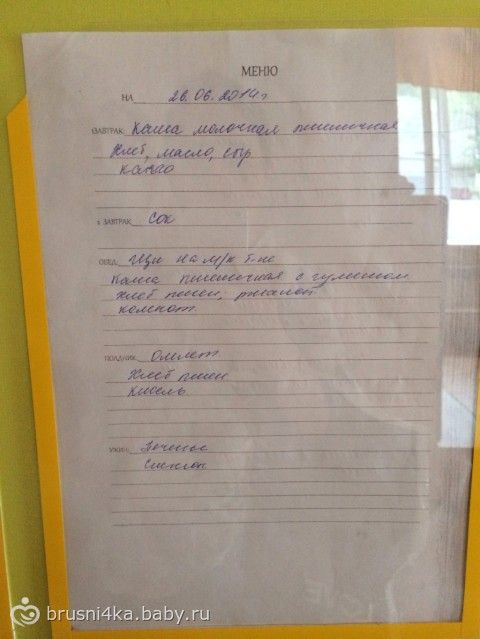 МЕНЮ
НА 26.06.2014 г
1ЗАВТРАК: Каша молочная пшеничная
Хлеб, масло, сыр
какао
2 ЗАВТРАК Сок
ОБЕД: Щи на м/к б-не
Каша пшеничная с гуляшом
Хлеб пшен, ржаной
компот
ПОЛДНИК Омлет
Хлеб пшен
Кисель
УЖИН: Печенье
brusni4ka.baby.ru